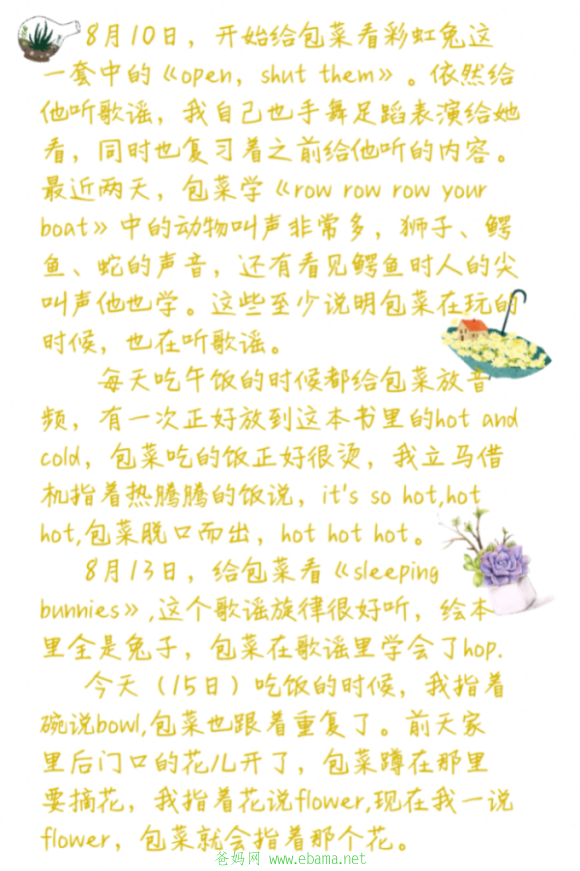 8月10日，开始给包菜看彩虹兔这
一套中的《open，shut them》。依然给
他听歌谣，我自己也手舞足蹈表演给她
看，同时也复习着之前给他听的内容。
最近两天，包菜学《row row row your
boat》中的动物叫声非常多，狮子、鳄
鱼、蛇的声音，还有看见鳄鱼时人的尖
叫声他也学。这些至少说明包菜在玩的
时候，也在听歌谣。
每天吃午饭的时候都给包菜放音
频，有一次正好放到这本书里的hot and
cold，包菜吃的饭正好很烫，我立马借
机指着热腾腾的饭说，it's so hot,hot
hot,包菜脱口而出，hot hot hot。
8月13日，给包菜看《sleeping
bunnies》,这个歌谣旋律很好听，绘本
里全是兔子，包菜在歌谣里学会了hop.
今天（15日）吃饭的时候，我指着
碗说bowl,包菜也跟着重复了。前天家
里后门口的花儿开了，包菜蹲在那里
要摘花，我指着花说flower,现在我一说
flower，包菜就会指着那个花。
爸妈网 www.ebama.net